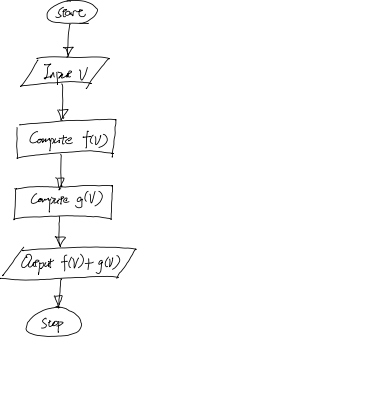 Start
Input V
Compute f(V)
Compute g(V)
Output f(V)+g(V)
Stop